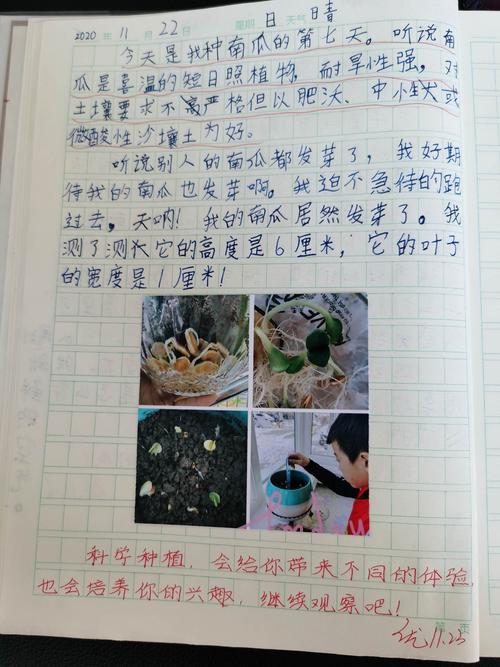 2020年 11月 22日 星期日 天气 晴
今天是我种南瓜的第七天。听说南
瓜是喜温的短日照植物，耐旱性强，对
土壤要求不高严格但以肥沃、中性或
微酸性沙壤土为好。
听说别人的南瓜都发芽了，我好期
待我的南瓜也发芽啊。我迫不急待的跑
过去，天呐！我的南瓜居然发芽了。我
测了测它的高度是6厘米，它的叶子
的宽度是1厘米！
科学种植，会给你带来不同的体验，
也会培养你的兴趣，继续观察吧！
优 11.23
第 页